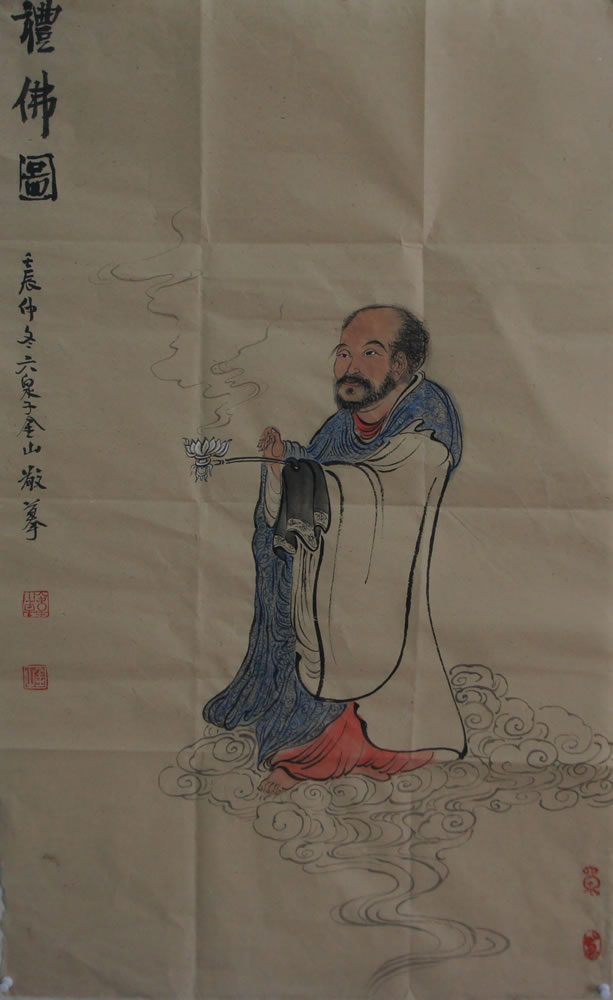 禮佛圖
壬辰仲冬六泉子金山敬摹